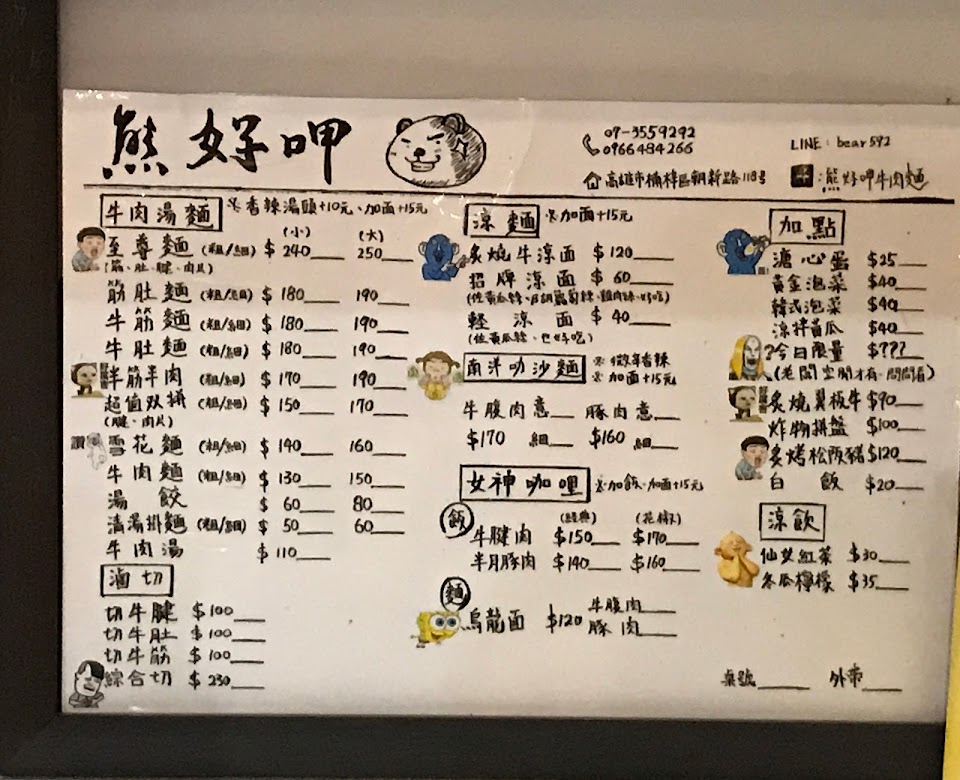 熊好呷
07-3559292
0966484266
高雄市楠梓區朝新路118号
LINE: bear592
熊好呷牛肉麵
牛肉湯麵 ※香辣湯頭+10元、加面+15元
(小) (大)
至尊麵 (粗/細) $240 250
(筋、肚、腱、肉片)
筋肚麵 (粗/細) $180 190
牛筋麵 (粗/細) $180 190
牛肚麵 (粗/細) $180 190
半筋半肉 (粗/細) $170 190
超值双拼 (粗/細) $150 170
(腱、肉片)
讚 雪花麵 (粗/細) $140 160
牛肉麵 (粗/細) $130 150
湯餃 $60 80
清湯拌麵 (粗/細) $50 60
牛肉湯 $110
滷切
切牛腱 $100
切牛肚 $100
切牛筋 $100
綜合切 $230
涼麵 ※加面+15元
炙燒牛涼面 $120
招牌涼面 $60
軽涼面 $40
(佐黃瓜絲、也好吃)
南洋叻沙麵 ※微辛香辣
※加面+15元
牛腹肉意 豚肉意
$170 細 $160 細
女神咖哩 ※加飯、加面+15元
飯 (經典) (花椒)
牛腱肉 $150 $170
半月豚肉 $140 $160
麵
烏龍面 $120 牛腹肉
豚肉
加點
溏心蛋 $25
黃金泡菜 $40
韓式泡菜 $40
涼拌黃瓜 $40
?今日限量 $???
(老闆空閒才有、問問看)
炙燒翼板牛 $90
炸物拼盤 $100
炙烤松阪豬 $120
白飯 $20
涼飲
仙女紅茶 $30
冬瓜檸檬 $35
桌號 外帶